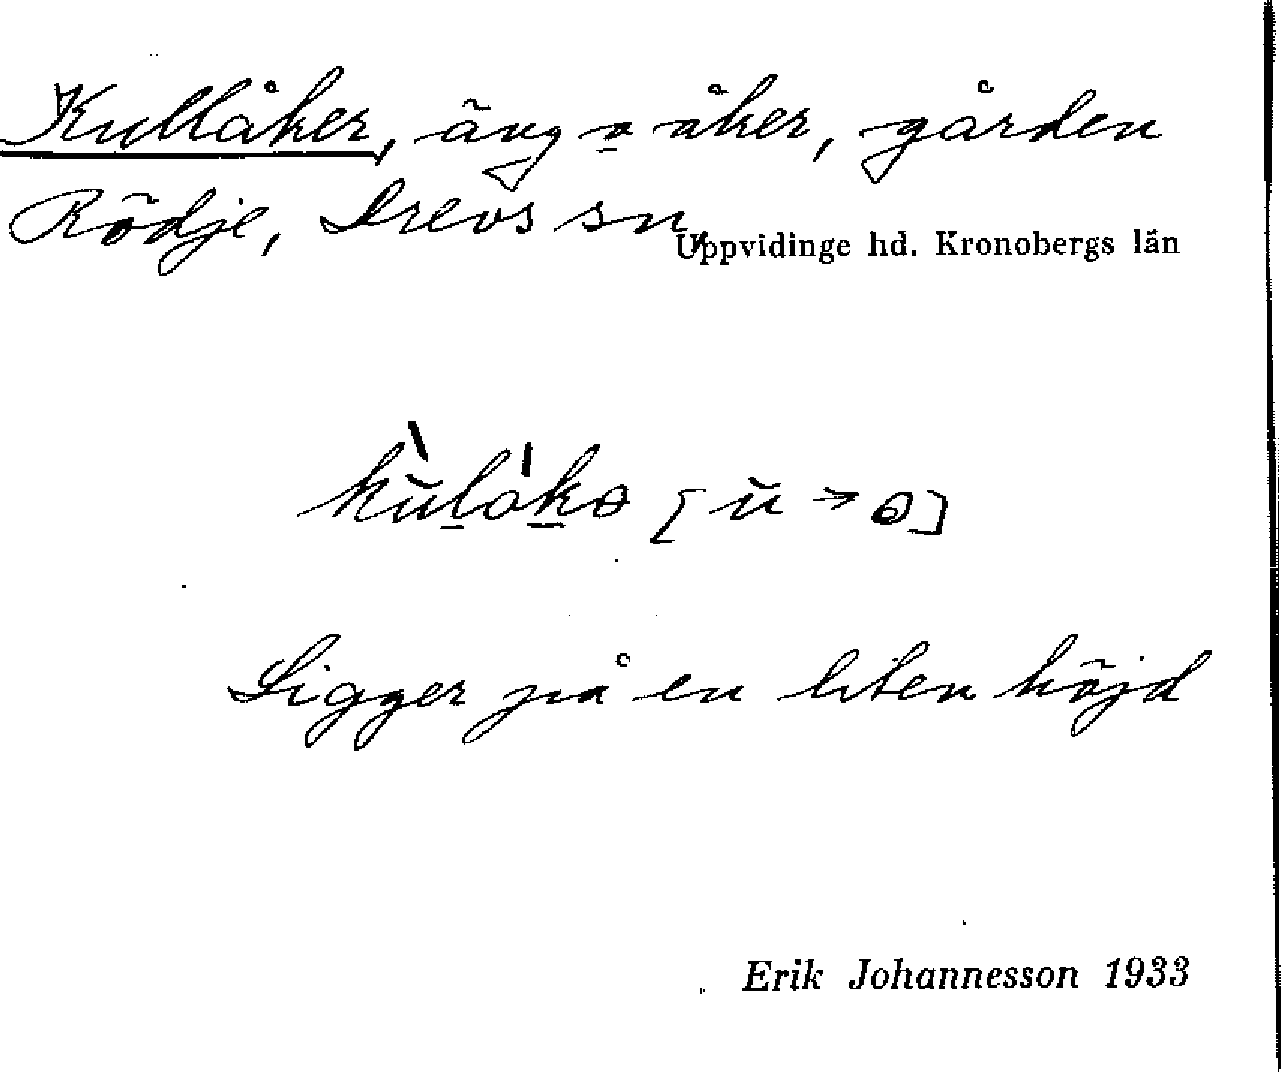 Kullåker, äng o åker, gården
Rödje, Drevs sn,
Uppvidinge hd. Kronobergs län
[ŭ → ɵ]
Ligger på en liten höjd
Erik Johannesson 1933